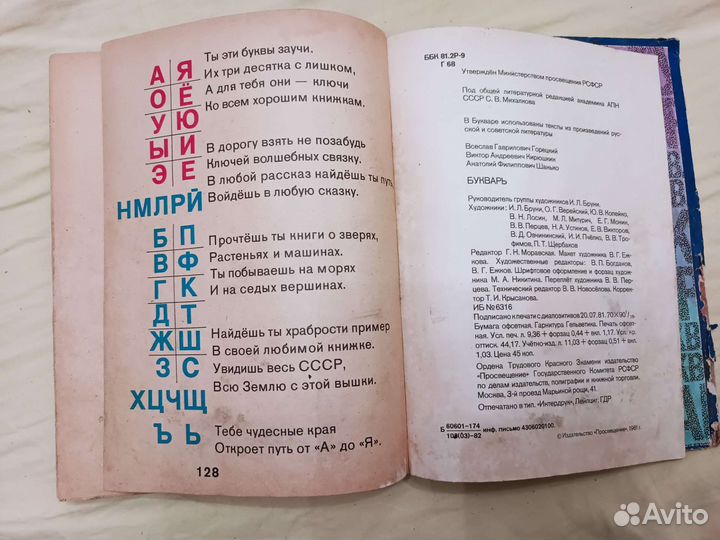 А Я
О Ё
У Ю
Ы И
Э Е
НМЛРЙ
Б П
В Ф
Г К
Д Т
Ж Ш
З С
ХЦЧЩ
Ъ Ь
Ты эти буквы заучи.
Их три десятка с лишком,
А для тебя они — ключи
Ко всем хорошим книжкам.
В дорогу взять не позабудь
Ключей волшебных связку.
В любой рассказ найдёшь ты путь,
Войдёшь в любую сказку.
Прочтёшь ты книги о зверях,
Растеньях и машинах.
Ты побываешь на морях
И на седых вершинах.
Найдёшь ты храбрости пример
В своей любимой книжке.
Увидишь весь СССР,
Всю Землю с этой вышки.
Тебе чудесные края
Откроет путь от «А» до «Я».
128
ББК 81.2Р-9
Г 68
Утверждён Министерством просвещения РСФСР
Под общей литературной редакцией академика АПН
СССР С. В. Михалкова
В Букваре использованы тексты из произведений рус-
ской и советской литературы
Всеслав Гаврилович Горецкий
Виктор Андреевич Кирюшкин
Анатолий Филиппович Шанько
БУКВАРЬ
Руководитель группы художников И. Л. Бруни.
Художники: И. Л. Бруни, О. Г. Верейский, Ю. В. Копейко,
В. Н. Лосин, М. П. Митурич, Е. Г. Монин,
В. В. Перцев, Н. А. Устинов, Е. В. Викторов,
В. Д. Овчининский, И. И. Пчёлко, В. В. Тро-
фимов, П. Т. Щербаков
Редактор Г. Н. Моравская. Макет художника В. Г.
Ежкова. Художественные редакторы: В. П. Богданов,
В. Г. Ежков. Шрифтовое оформление и форзац худож-
ника М. А. Никитина. Переплёт художника В. В. Пер-
цева. Технический редактор В. В. Новосёлова. Коррек-
тор Т. И. Крысанова.
ИБ № 6316
Подписано к печати с диапозитивов 20.07.81. 70×90¹/
Бумага офсетная. Гарнитура Гельветика. Печать офсет-
ная. Усл. печ. л. 9,36 + форзац 0,44 + вкл. 1,17. Усл. кр.
оттисков. 44,17. Учётно-изд. л. 11,03 + форзац 0,51 + вкл.
1,03. Цена 45 коп.
Ордена Трудового Красного Знамени издательство
«Просвещение» Государственного Комитета РСФСР
по делам издательств, полиграфии и книжной торговли.
Москва, 3-й проезд Марьиной рощи, 41.
Отпечатано в тип. «Интердрук», Лейпциг, ГДР
Б 60601—174
103(03)—82 инф. письмо 4306020100.
© Издательство «Просвещение», 1981 г.
Avito